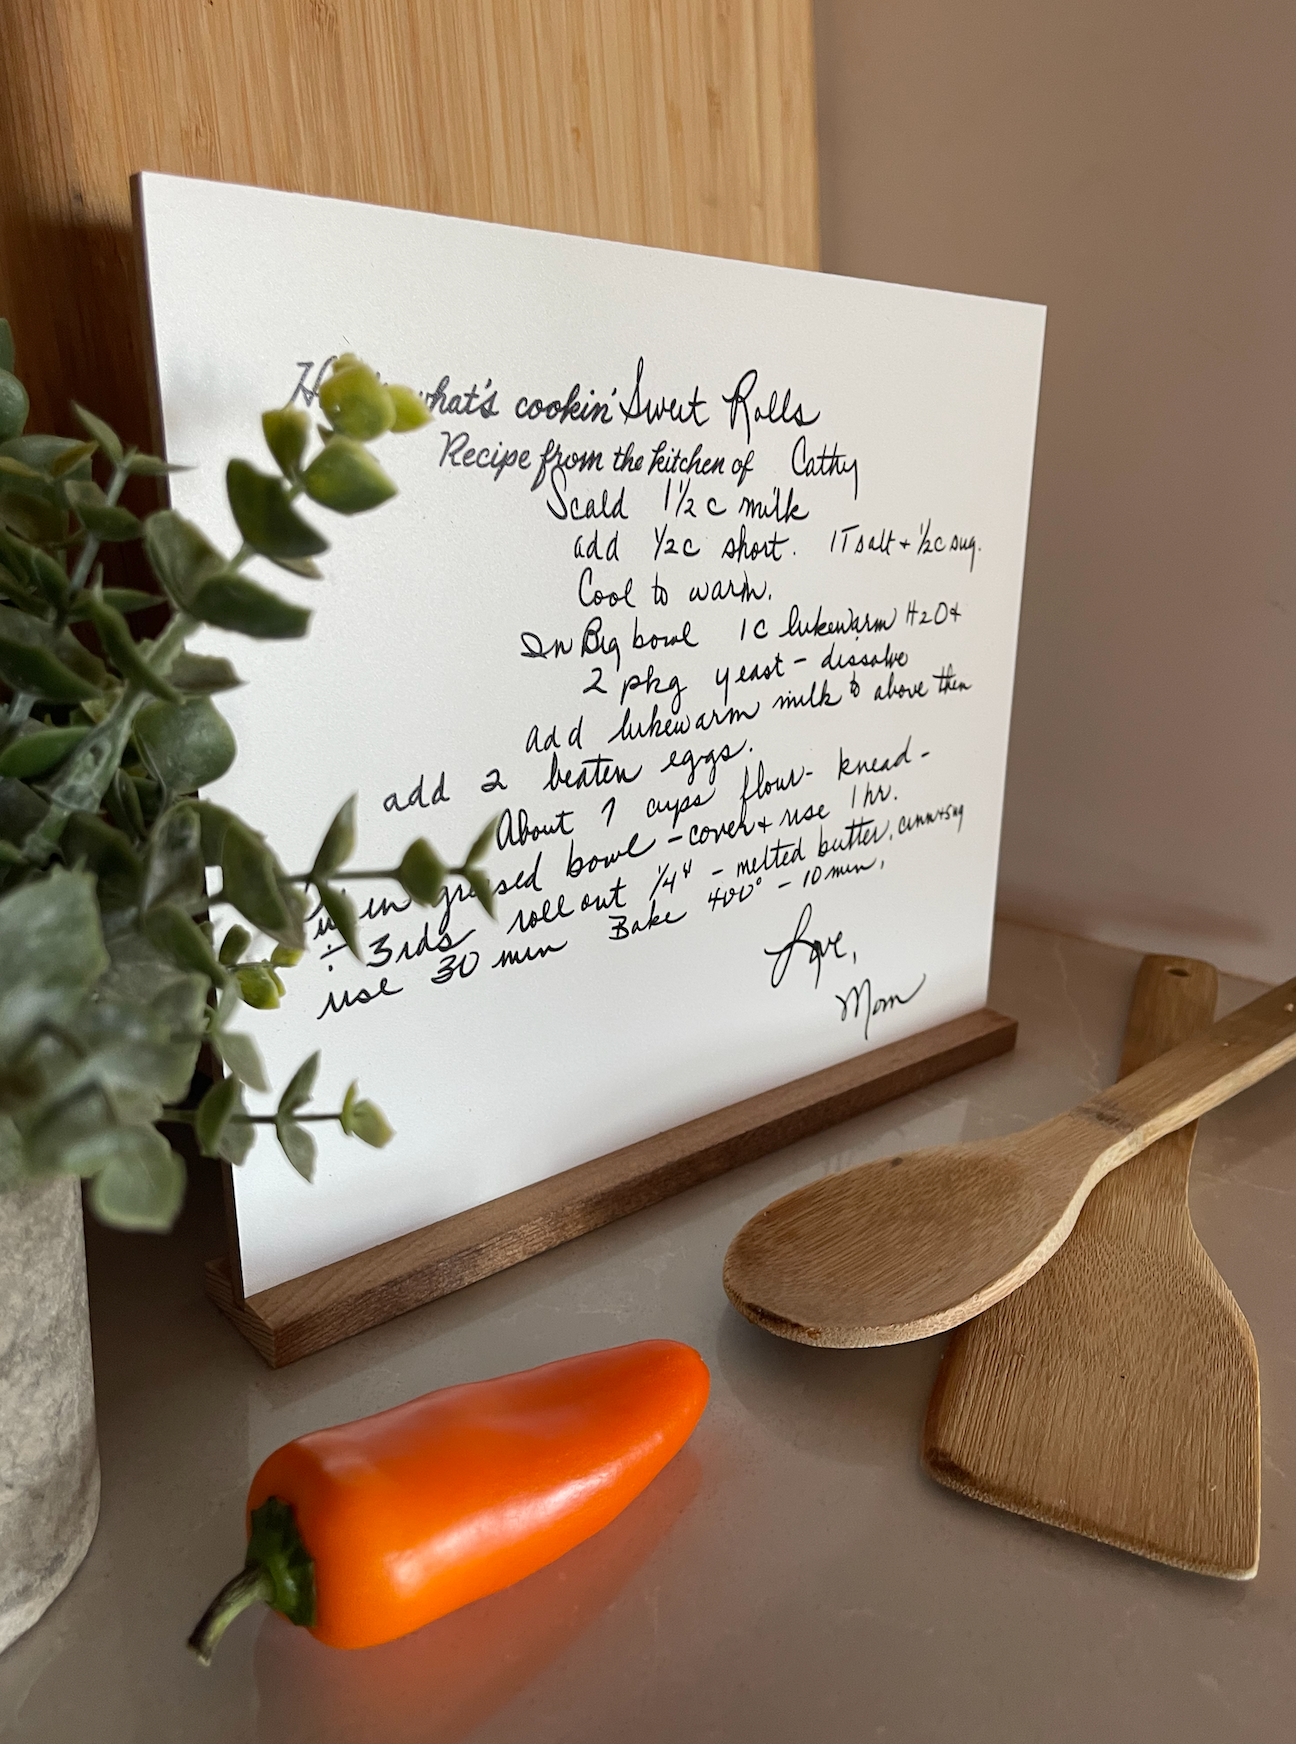 what's cookin' Sweet Rolls
Recipe from the kitchen of Cathy
Scald 1 1/2 c milk
add 1/2 c short. 1T salt + 1/2 c sug.
Cool to warm.
In Big bowl 1 C lukewarm H2O +
2 pkg yeast - dissolve
add lukewarm milk to above then
add 2 beaten eggs.
About 7 cups flour - knead -
in greased bowl - cover + rise 1 hr.
÷ 3rds roll out 1/4" - melted butter, cinn + sug
rise 30 min Bake 400° - 10 min.
Love,
Mom